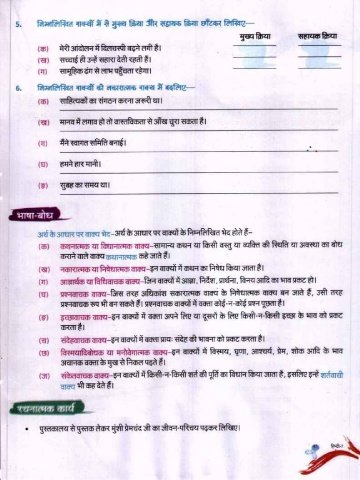 5. निम्नलिखित वाक्यों में से मुख्य क्रिया और सहायक क्रिया छाँटकर लिखिए—
मुख्य क्रिया सहायक क्रिया
(क) मेरी आंदोलन में दिलचस्पी बढ़ने लगी है।
(ख) सच्चाई ही उन्हें सहारा देती रहती है।
(ग) सामूहिक ढंग से लाभ पहुँचता रहेगा।
6. निम्नलिखित वाक्यों को नकारात्मक वाक्य में बदलिए—
(क) साहित्यकों का संगठन करना जरूरी था।
(ख) मानव में लगाव हो तो वास्तविकता से आँख चुरा सकता है।
(ग) मैंने स्वागत समिति बनाई।
(घ) हमने हार मानी।
(ङ) सुबह का समय था।
भाषा-बोध
अर्थ के आधार पर वाक्य भेद–अर्थ के आधार पर वाक्यों के निम्नलिखित भेद होते हैं–
(क) कथनात्मक या विधानात्मक वाक्य–सामान्य कथन या किसी वस्तु या व्यक्ति की स्थिति या अवस्था का बोध
कराने वाले वाक्य कथनात्मक कहे जाते हैं।
(ख) नकारात्मक या निषेधात्मक वाक्य–इन वाक्यों में कथन का निषेध किया जाता है।
(ग) आज्ञार्थक या विधिवाचक वाक्य–जिन वाक्यों में आज्ञा, निर्देश, प्रार्थना, विनय आदि का भाव प्रकट हो।
(घ) प्रश्नवाचक वाक्य–जिस तरह अधिकांश सकारात्मक वाक्य के निषेधात्मक वाक्य बन जाते हैं, उसी तरह
प्रश्नवाचक रूप भी बन सकते हैं। प्रश्नवाचक वाक्यों में वक्ता कोई-न-कोई प्रश्न पूछता है।
(ङ) इच्छावाचक वाक्य–इन वाक्यों में वक्ता अपने लिए या दूसरों के लिए किसी-न-किसी इच्छा के भाव को प्रकट
करता है।
(च) संदेहवाचक वाक्य–इन वाक्यों में वक्ता प्रायः संदेह की भावना को प्रकट करता है।
(छ) विस्मयादिबोधक या मनोवेगात्मक वाक्य–इन वाक्यों में विस्मय, घृणा, आश्चर्य, प्रेम, शोक आदि के भाव
अचानक वक्ता के मुख से निकल पड़ते हैं।
(ज) संकेतवाचक वाक्य–इन वाक्यों में किसी-न-किसी शर्त की पूर्ति का विधान किया जाता है, इसलिए इन्हें शर्तवाची
वाक्य भी कह देते हैं।
रचनात्मक कार्य
• पुस्तकालय से पुस्तक लेकर मुंशी प्रेमचंद जी का जीवन-परिचय पढ़कर लिखिए।